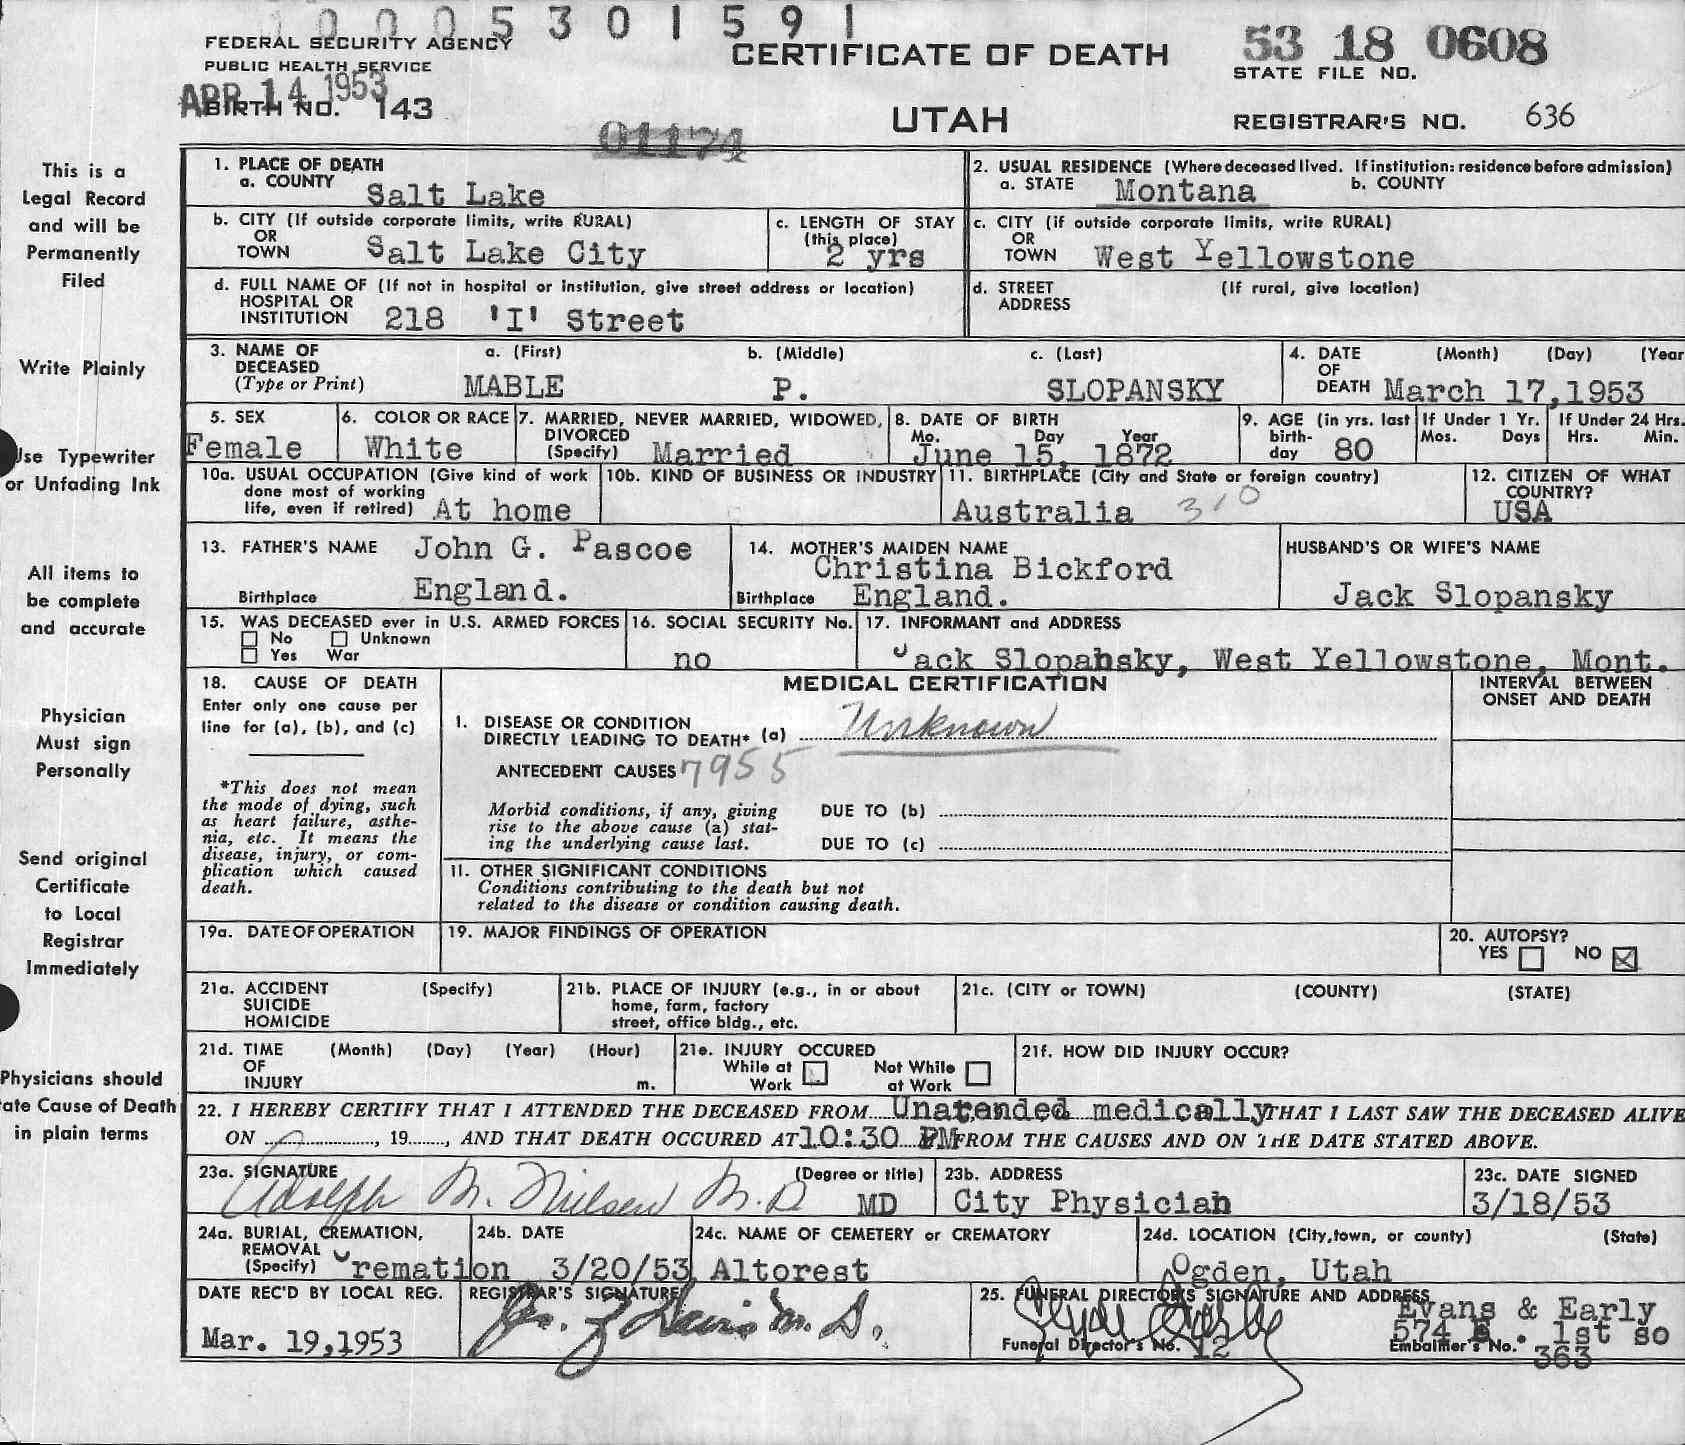 0 0 0 5 3 0 1 5 9 1
FEDERAL SECURITY AGENCY
PUBLIC HEALTH SERVICE
APR 14 1953
BIRTH NO. 143
CERTIFICATE OF DEATH
UTAH
53 18 0608
STATE FILE NO.
REGISTRAR'S NO. 636
01174
This is a
Legal Record
and will be
Permanently
Filed
Write Plainly
Use Typewriter
or Unfading Ink
All items to
be complete
and accurate
Physician
Must sign
Personally
Send original
Certificate
to Local
Registrar
Immediately
Physicians should
ate Cause of Death
in plain terms
1. PLACE OF DEATH
a. COUNTY Salt Lake
2. USUAL RESIDENCE (Where deceased lived. If institution: residence before admission)
a. STATE Montana b. COUNTY
b. CITY (If outside corporate limits, write RURAL)
OR
TOWN Salt Lake City
c. LENGTH OF STAY
(this place)
2 yrs
c. CITY (if outside corporate limits, write RURAL)
OR
TOWN West Yellowstone
d. FULL NAME OF (If not in hospital or institution, give street address or location)
HOSPITAL OR
INSTITUTION 218 'I' Street
d. STREET (If rural, give location)
ADDRESS
3. NAME OF a. (First) b. (Middle) c. (Last)
DECEASED
(Type or Print) MABLE P. SLOPANSKY
4. DATE (Month) (Day) (Year
OF
DEATH March 17,1953
5. SEX
Female
6. COLOR OR RACE
White
7. MARRIED, NEVER MARRIED, WIDOWED,
DIVORCED
(Specify) Married
8. DATE OF BIRTH
Mo. Day Year
June 15, 1872
9. AGE (in yrs. last
birth-
day 80
If Under 1 Yr.
Mos. Days
If Under 24 Hrs.
Hrs. Min.
10a. USUAL OCCUPATION (Give kind of work
done most of working
life, even if retired) At home
10b. KIND OF BUSINESS OR INDUSTRY
11. BIRTHPLACE (City and State or foreign country)
Australia 310
12. CITIZEN OF WHAT
COUNTRY?
USA
13. FATHER'S NAME John G. Pascoe
Birthplace England.
14. MOTHER'S MAIDEN NAME
Christina Bickford
Birthplace England.
HUSBAND'S OR WIFE'S NAME
Jack Slopansky
15. WAS DECEASED ever in U.S. ARMED FORCES
No Unknown
Yes War
16. SOCIAL SECURITY No.
no
17. INFORMANT and ADDRESS
Jack Slopansky, West Yellowstone, Mont.
18. CAUSE OF DEATH
Enter only one cause per
line for (a), (b), and (c)
*This does not mean
the mode of dying, such
as heart failure, asthe-
nia, etc. It means the
disease, injury, or com-
plication which caused
death.
MEDICAL CERTIFICATION
INTERVAL BETWEEN
ONSET AND DEATH
1. DISEASE OR CONDITION
DIRECTLY LEADING TO DEATH* (a) Unknown
ANTECEDENT CAUSES 7955
Morbid conditions, if any, giving
rise to the above cause (a) stat-
ing the underlying cause last.
DUE TO (b)
DUE TO (c)
11. OTHER SIGNIFICANT CONDITIONS
Conditions contributing to the death but not
related to the disease or condition causing death.
19a. DATE OF OPERATION
19. MAJOR FINDINGS OF OPERATION
20. AUTOPSY?
YES NO
21a. ACCIDENT (Specify)
SUICIDE
HOMICIDE
21b. PLACE OF INJURY (e.g., in or about
home, farm, factory
street, office bldg., etc.
21c. (CITY or TOWN) (COUNTY) (STATE)
21d. TIME (Month) (Day) (Year) (Hour)
OF
INJURY m.
21e. INJURY OCCURED
While at Not While
Work at Work
21f. HOW DID INJURY OCCUR?
22. I HEREBY CERTIFY THAT I ATTENDED THE DECEASED FROM Unatended medically THAT I LAST SAW THE DECEASED ALIVE
ON , 19 , AND THAT DEATH OCCURED AT 10:30 PM FROM THE CAUSES AND ON THE DATE STATED ABOVE.
23a. SIGNATURE (Degree or title)
Adolph M. Nielsen M.D. MD
23b. ADDRESS
City Physician
23c. DATE SIGNED
3/18/53
24a. BURIAL, CREMATION,
REMOVAL
(Specify) Cremation
24b. DATE
3/20/53
24c. NAME OF CEMETERY or CREMATORY
Altorest
24d. LOCATION (City,town, or county) (State)
Ogden, Utah
DATE REC'D BY LOCAL REG.
Mar. 19,1953
REGISTRAR'S SIGNATURE
25. FUNERAL DIRECTOR'S SIGNATURE AND ADDRESS
Evans & Early
574 E. 1st so
Funeral Director's No. 12
Embalmer's No. 363